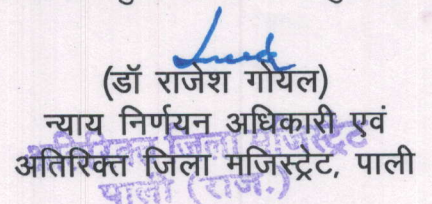 (डॉ राजेश गोयल)
न्याय निर्णयन अधिकारी एवं
अतिरिक्त जिला मजिस्ट्रेट
अतिरिक्त जिला मजिस्ट्रेट, पाली
पाली (राज.)